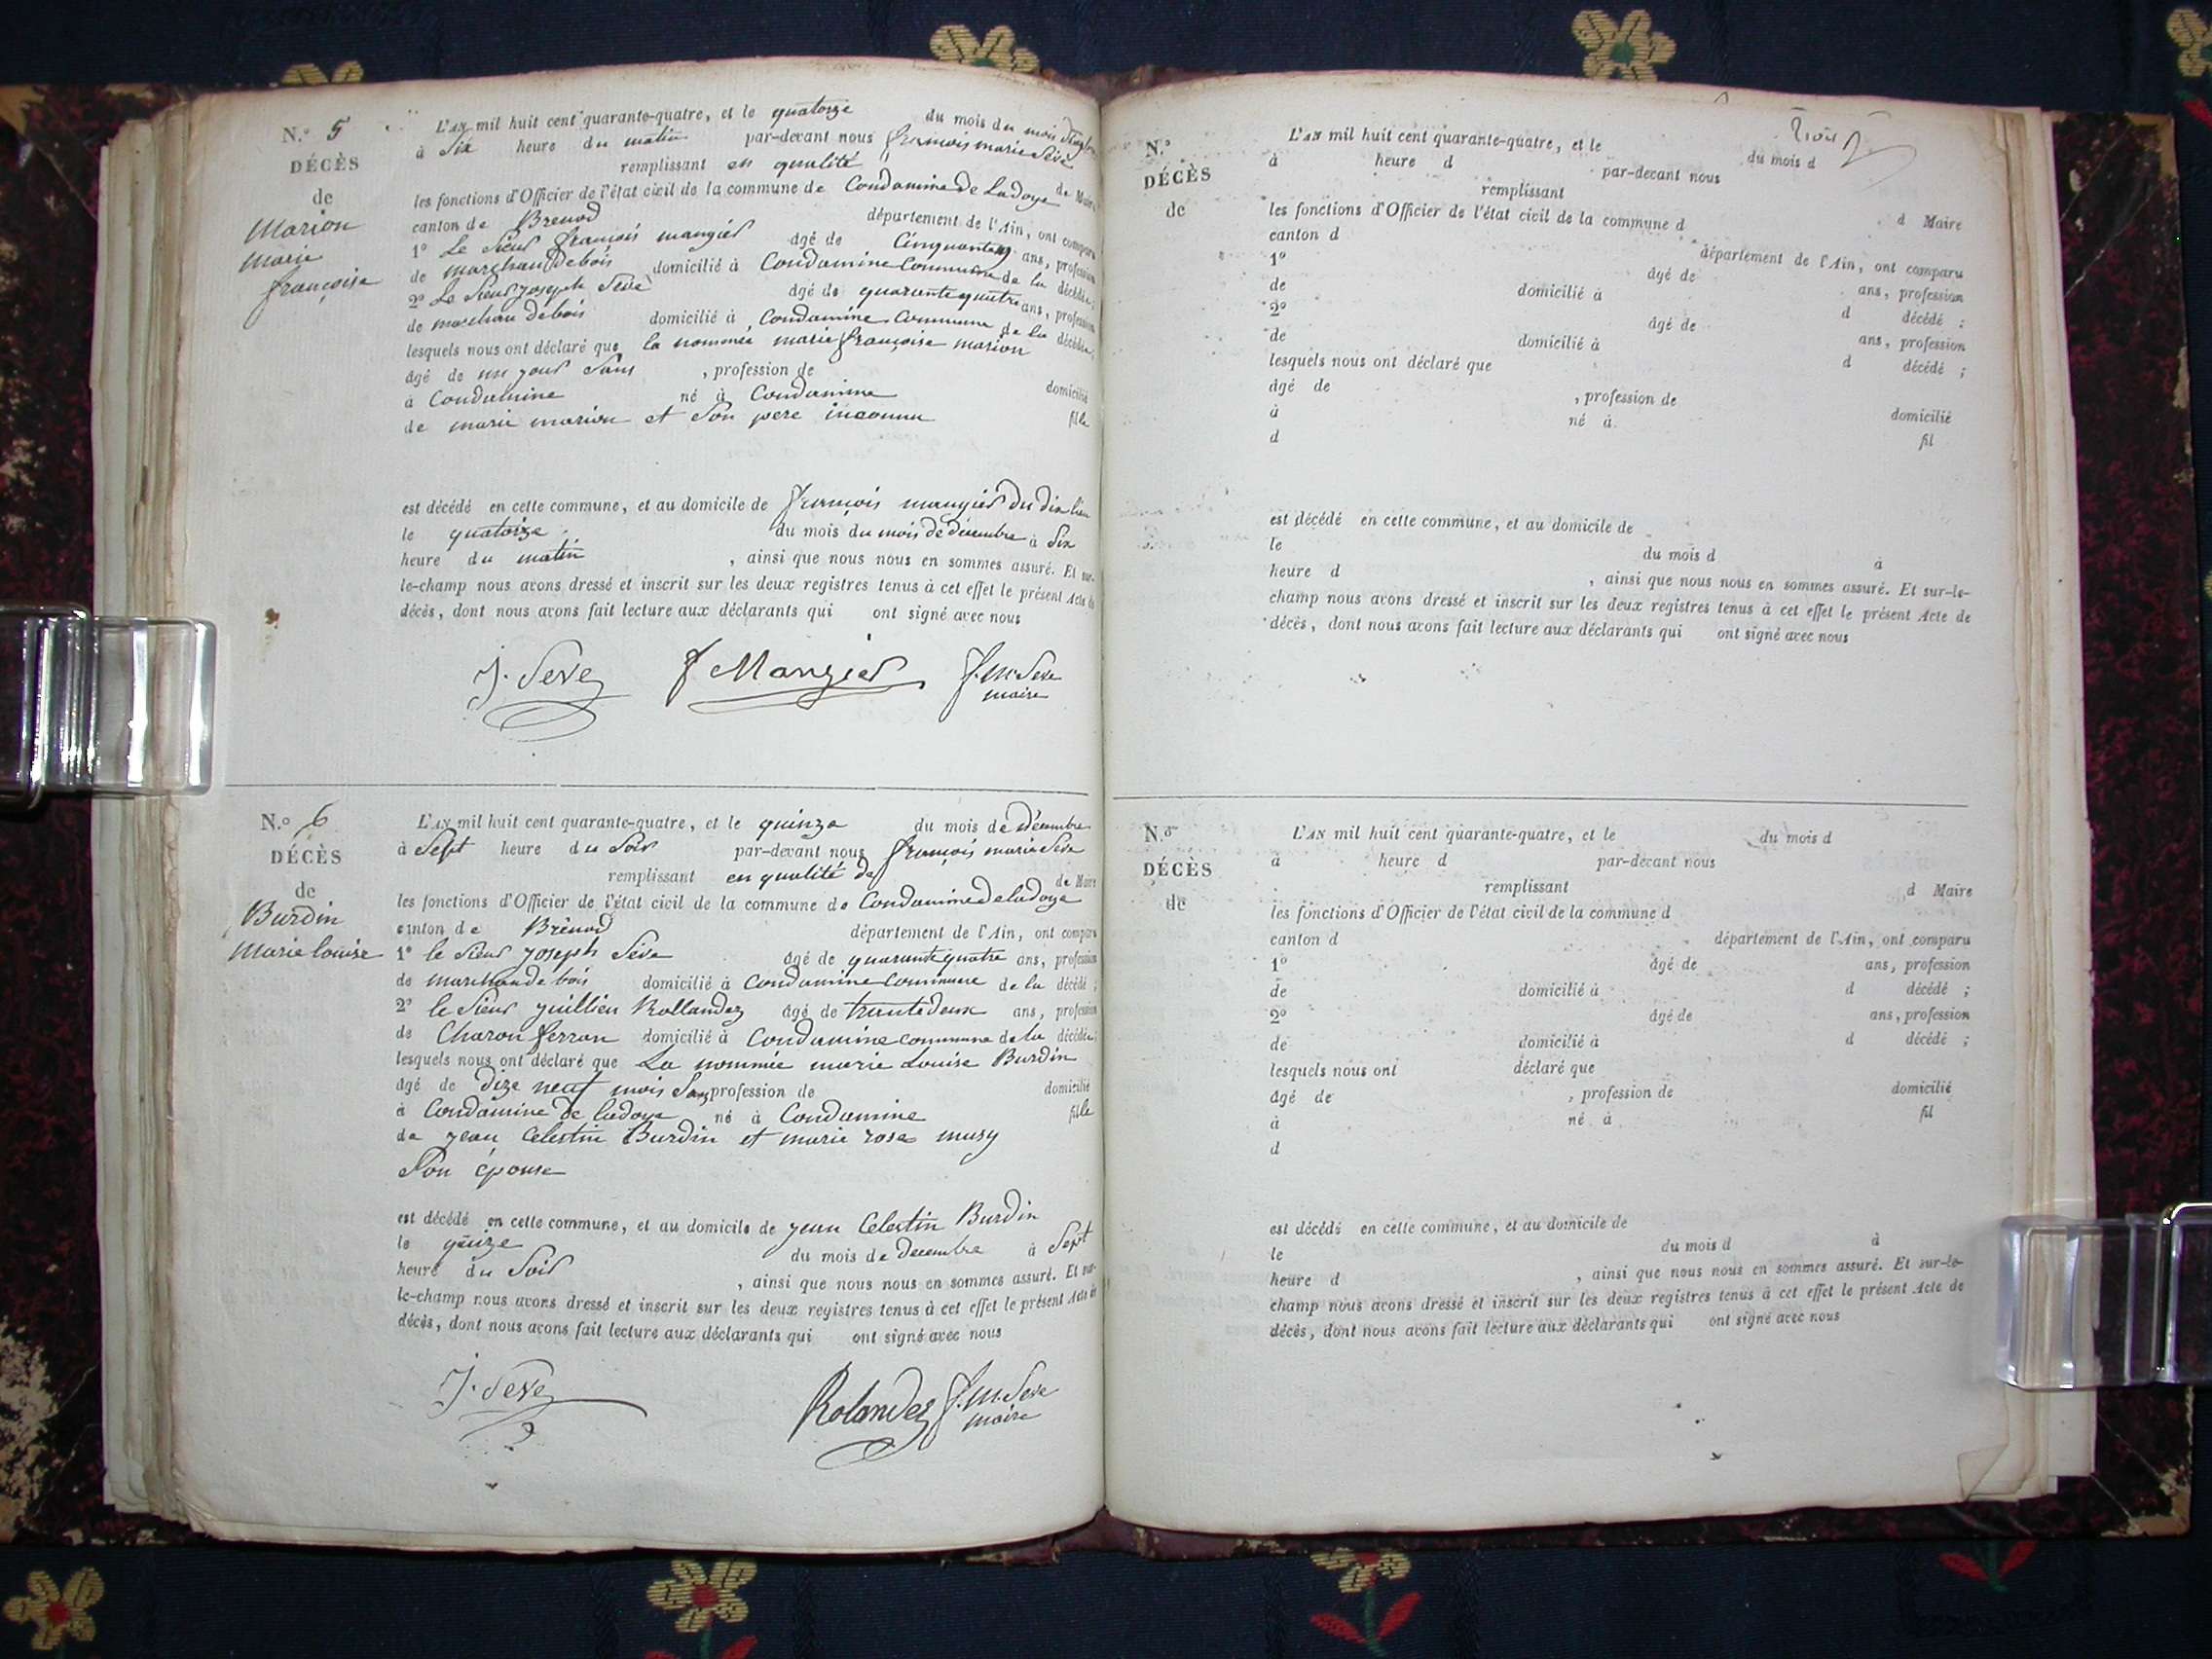 N.o 5
DÉCÈS
de
Marion
Marie
françoise
L'AN mil huit cent quarante-quatre, et le quatorze du mois du mois
à Six heure du matin par-devant nous françois marie Seve
remplissant en qualité de Maire
les fonctions d'Officier de l'état civil de la commune de Condamine de Ladoye
canton de Brenod département de l'Ain, ont comparu
1o Le Sieur françois mangier âgé de Cinquante ans, profession
de marchand de bois domicilié à Condamine Commune de la décédée;
2o Le Sieur joseph Seve âgé de quarante quatre ans, profession
de marchan de bois domicilié à Condamine Commune de la décédée;
lesquels nous ont déclaré que la nommée marie françoise marion
âgé de un jour Sans , profession de domicilié
à Condamine né à Condamine fille
de marie marion et Son pere inconnu
est décédé en cette commune, et au domicile de françois mangier du dix lieu
le quatorze du mois du mois de décembre à Six
heure du matin , ainsi que nous nous en sommes assuré. Et sur-
le-champ nous avons dressé et inscrit sur les deux registres tenus à cet effet le présent Acte de
décès, dont nous avons fait lecture aux déclarants qui ont signé avec nous
J. Seve f Mangier f. m. Seve
maire
N.o 6
DÉCÈS
de
Burdin
Marie louise
L'AN mil huit cent quarante-quatre, et le quinze du mois de décembre
à Sept heure du Soir par-devant nous françois marie Seve
remplissant en qualité de de Maire
les fonctions d'Officier de l'état civil de la commune de Condamine de ladoye
canton de Brénod département de l'Ain, ont comparu
1o le Sieur joseph Séve âgé de quarante quatre ans, profession
de marchan de bois domicilié à Condamine Commune de la décédé ;
2o le Sieur juillien Rollandez âgé de trente deux ans, profession
de Charon ferran domicilié à Condamine commune de la décédée;
lesquels nous ont déclaré que La nommée marie Louise Burdin
âgé de dize neuf mois Sans profession de domicilié
à Condamine de ladoye né à Condamine fille
de jean Celestin Burdin et marie rose musy
Son épouse
est décédé en cette commune, et au domicile de jean Celestin Burdin
le du mois de decembre à Sept
heure du Soir , ainsi que nous nous en sommes assuré. Et sur-
le-champ nous avons dressé et inscrit sur les deux registres tenus à cet effet le présent Acte de
décès, dont nous avons fait lecture aux déclarants qui ont signé avec nous
J. Seve Rolandez f. m. Seve
maire
N.o
DÉCÈS
de
L'AN mil huit cent quarante-quatre, et le du mois d
à heure d par-devant nous
remplissant d Maire
les fonctions d'Officier de l'état civil de la commune d
canton d département de l'Ain, ont comparu
1o âgé de ans, profession
de domicilié à d décédé ;
2o âgé de ans, profession
de domicilié à d décédé ;
lesquels nous ont déclaré que
âgé de , profession de domicilié
à né à fil
d
est décédé en cette commune, et au domicile de
le du mois d à
heure d , ainsi que nous nous en sommes assuré. Et sur-le-
champ nous avons dressé et inscrit sur les deux registres tenus à cet effet le présent Acte de
décès, dont nous avons fait lecture aux déclarants qui ont signé avec nous
N.o
DÉCÈS
de
L'AN mil huit cent quarante-quatre, et le du mois d
à heure d par-devant nous
remplissant d Maire
les fonctions d'Officier de l'état civil de la commune d
canton d département de l'Ain, ont comparu
1o âgé de ans, profession
de domicilié à d décédé ;
2o âgé de ans, profession
de domicilié à d décédé ;
lesquels nous ont déclaré que
âgé de , profession de domicilié
à né à fil
d
est décédé en cette commune, et au domicile de
le du mois d à
heure d , ainsi que nous nous en sommes assuré. Et sur-le-
champ nous avons dressé et inscrit sur les deux registres tenus à cet effet le présent Acte de
décès, dont nous avons fait lecture aux déclarants qui ont signé avec nous